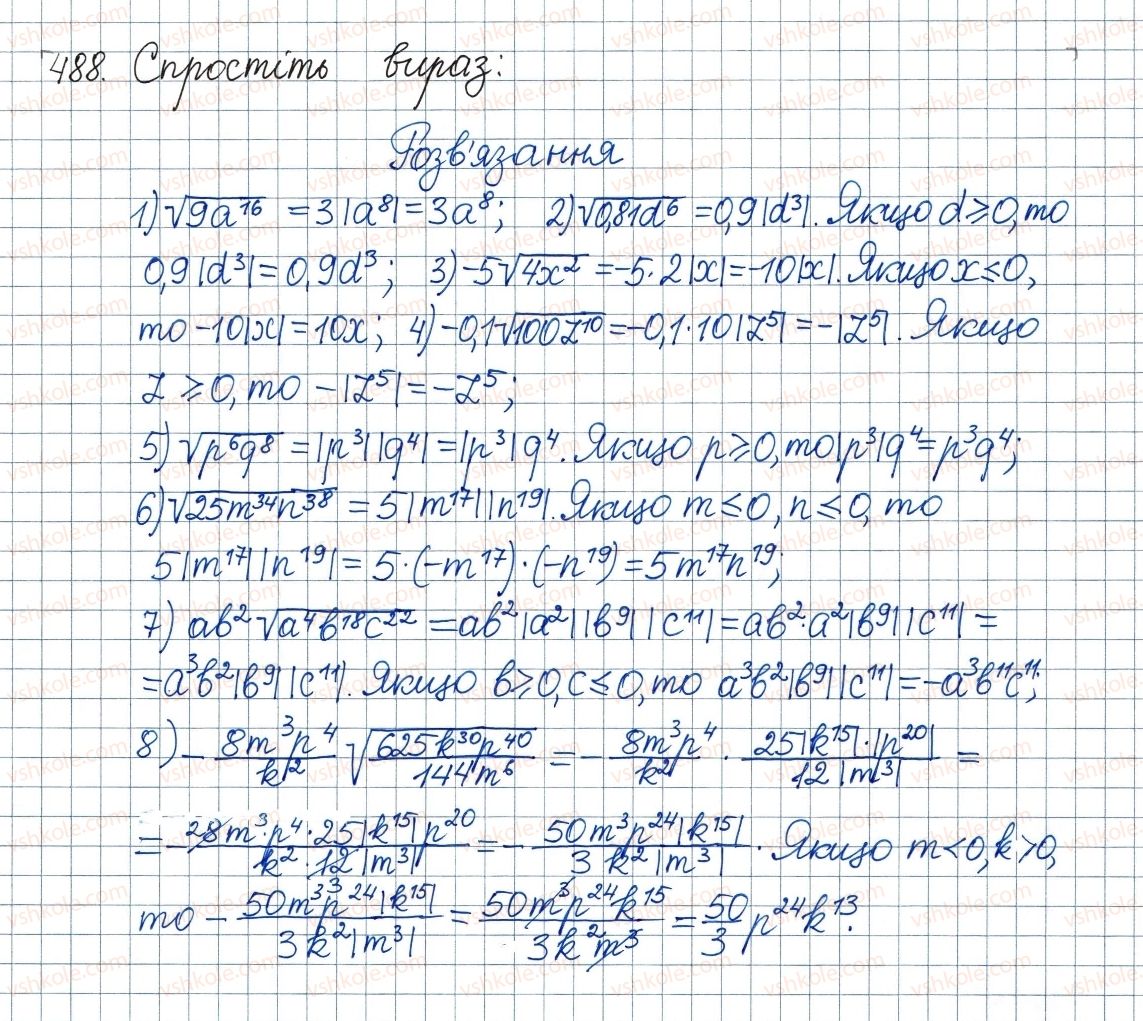 488. Спростіть вираз:
Розв'язання
1) √9a¹⁶ = 3|a⁸| = 3a⁸; 2) √0,81d⁶ = 0,9|d³|. Якщо d ⩾ 0, то
0,9|d³| = 0,9d³; 3) -5√4x² = -5·2|x| = -10|x|. Якщо x ≤ 0,
то -10|x| = 10x; 4) -0,1√100z¹⁰ = -0,1·10|z⁵| = -|z⁵|. Якщо
z ⩾ 0, то -|z⁵| = -z⁵;
5) √p⁶q⁸ = |p³||q⁴| = |p³|q⁴. Якщо p ⩾ 0, то |p³|q⁴ = p³q⁴;
6) √25m³⁴n³⁸ = 5|m¹⁷||n¹⁹|. Якщо m ≤ 0, n ≤ 0, то
5|m¹⁷||n¹⁹| = 5·(-m¹⁷)·(-n¹⁹) = 5m¹⁷n¹⁹;
7) ab²√a⁴b¹⁸c²² = ab²|a²||b⁹||c¹¹| = ab²·a²|b⁹||c¹¹| =
= a³b²|b⁹||c¹¹|. Якщо b ⩾ 0, c ≤ 0, то a³b²|b⁹||c¹¹| = -a³b¹¹c¹¹;
8) - 8m³p⁴/k² √625k³⁰p⁴⁰/144m⁶ = - 8m³p⁴/k² · 25|k¹⁵|·|p²⁰|/12|m³| =
= - ²8m³·p⁴·25|k¹⁵|p²⁰/k²·12|m³| = - 50m³p²⁴|k¹⁵|/3k²|m³|. Якщо m < 0, k > 0,
то - 50m³p²⁴|k¹⁵|/3k²|m³| = 50m³p²⁴k¹⁵/3k²m³ = 50/3 p²⁴k¹³.
vshkole.com